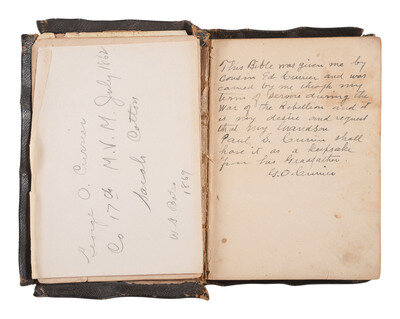 George O. Currier
Co 17th M. V. M. July 1862
Sarah Cotton
1869
This Bible was given me by
Cousin Ed Currier and was
carried by me through my
term of Service during the
War of the Rebellion and it
is my desire and request
that my Grandson
Paul S. Currier shall
have it as a keepsake
from his Grandfather
G. O. Currier